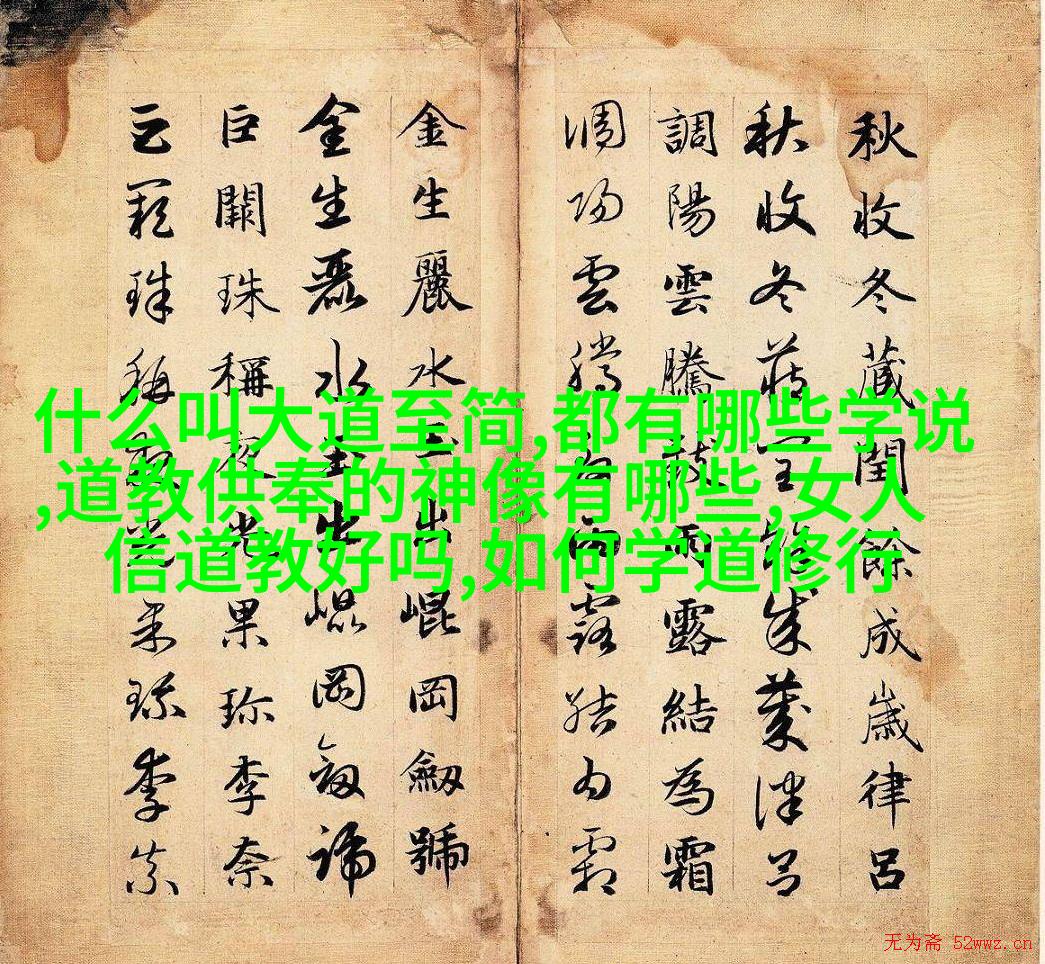 秋收冬蔵閏餘成歳律呂
秋收冬藏閏餘成歲律呂
調陽雲騰致雨露結為霜
調陽雲騰致雨露結為霜
金生麗水玉出崐岡劒號
金生麗水玉出崐岡劒號
巨闕珠稱夜光果珎李柰
巨闕珠稱夜光果珎李柰
什么叫大道至简,都有哪些学说
,道教供奉的神像有哪些,女人
信道教好吗,如何学道修行
无为斋 52wwz.cn